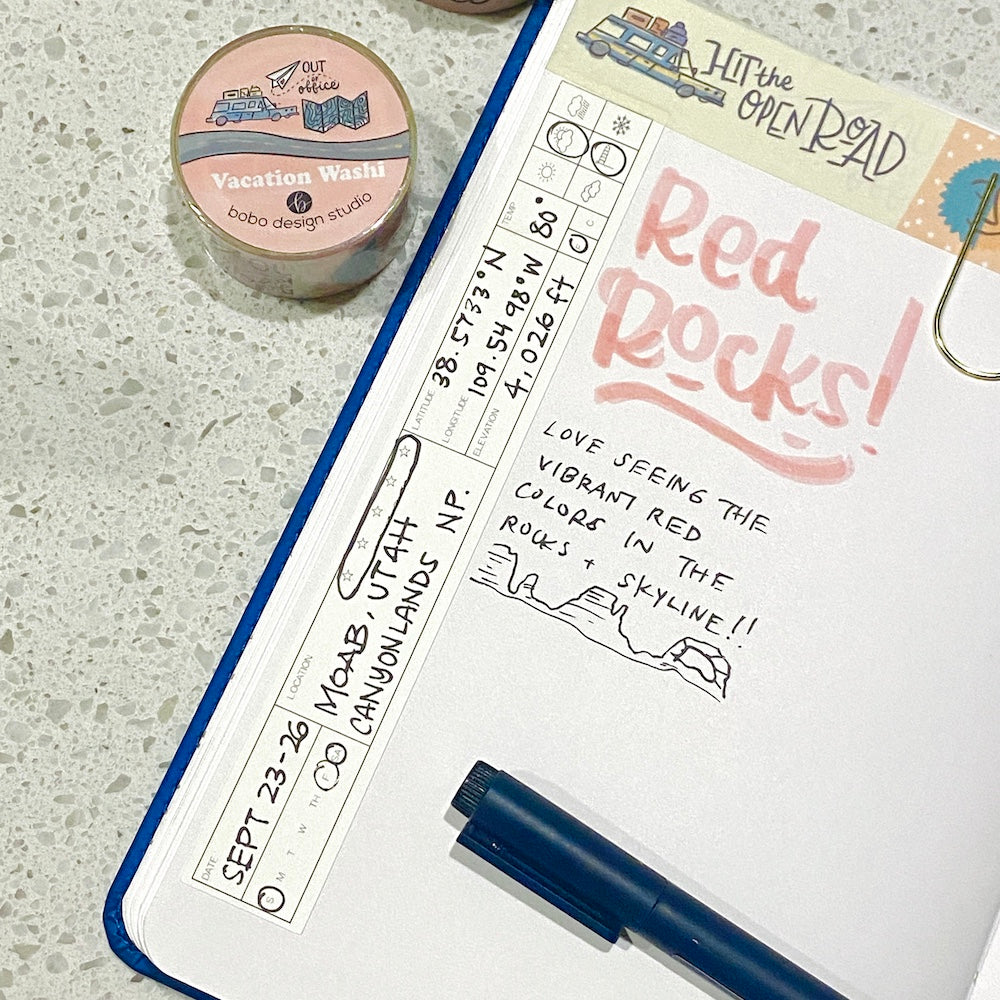 OUT
of
office
Vacation Washi
b
bobo design studio
HIT the
OPEN ROAD
Red
Rocks!
LOVE SEEING THE
VIBRANT RED
COLORS IN THE
ROCKS + SKYLINE!!
TEMP
80°
F C
LATITUDE
38.5733°N
LONGITUDE
109.5498°W
ELEVATION
4,026 ft
LOCATION
MOAB, UTAH
CANYONLANDS NP.
DATE
SEPT 23-26
S M T W TH F SA